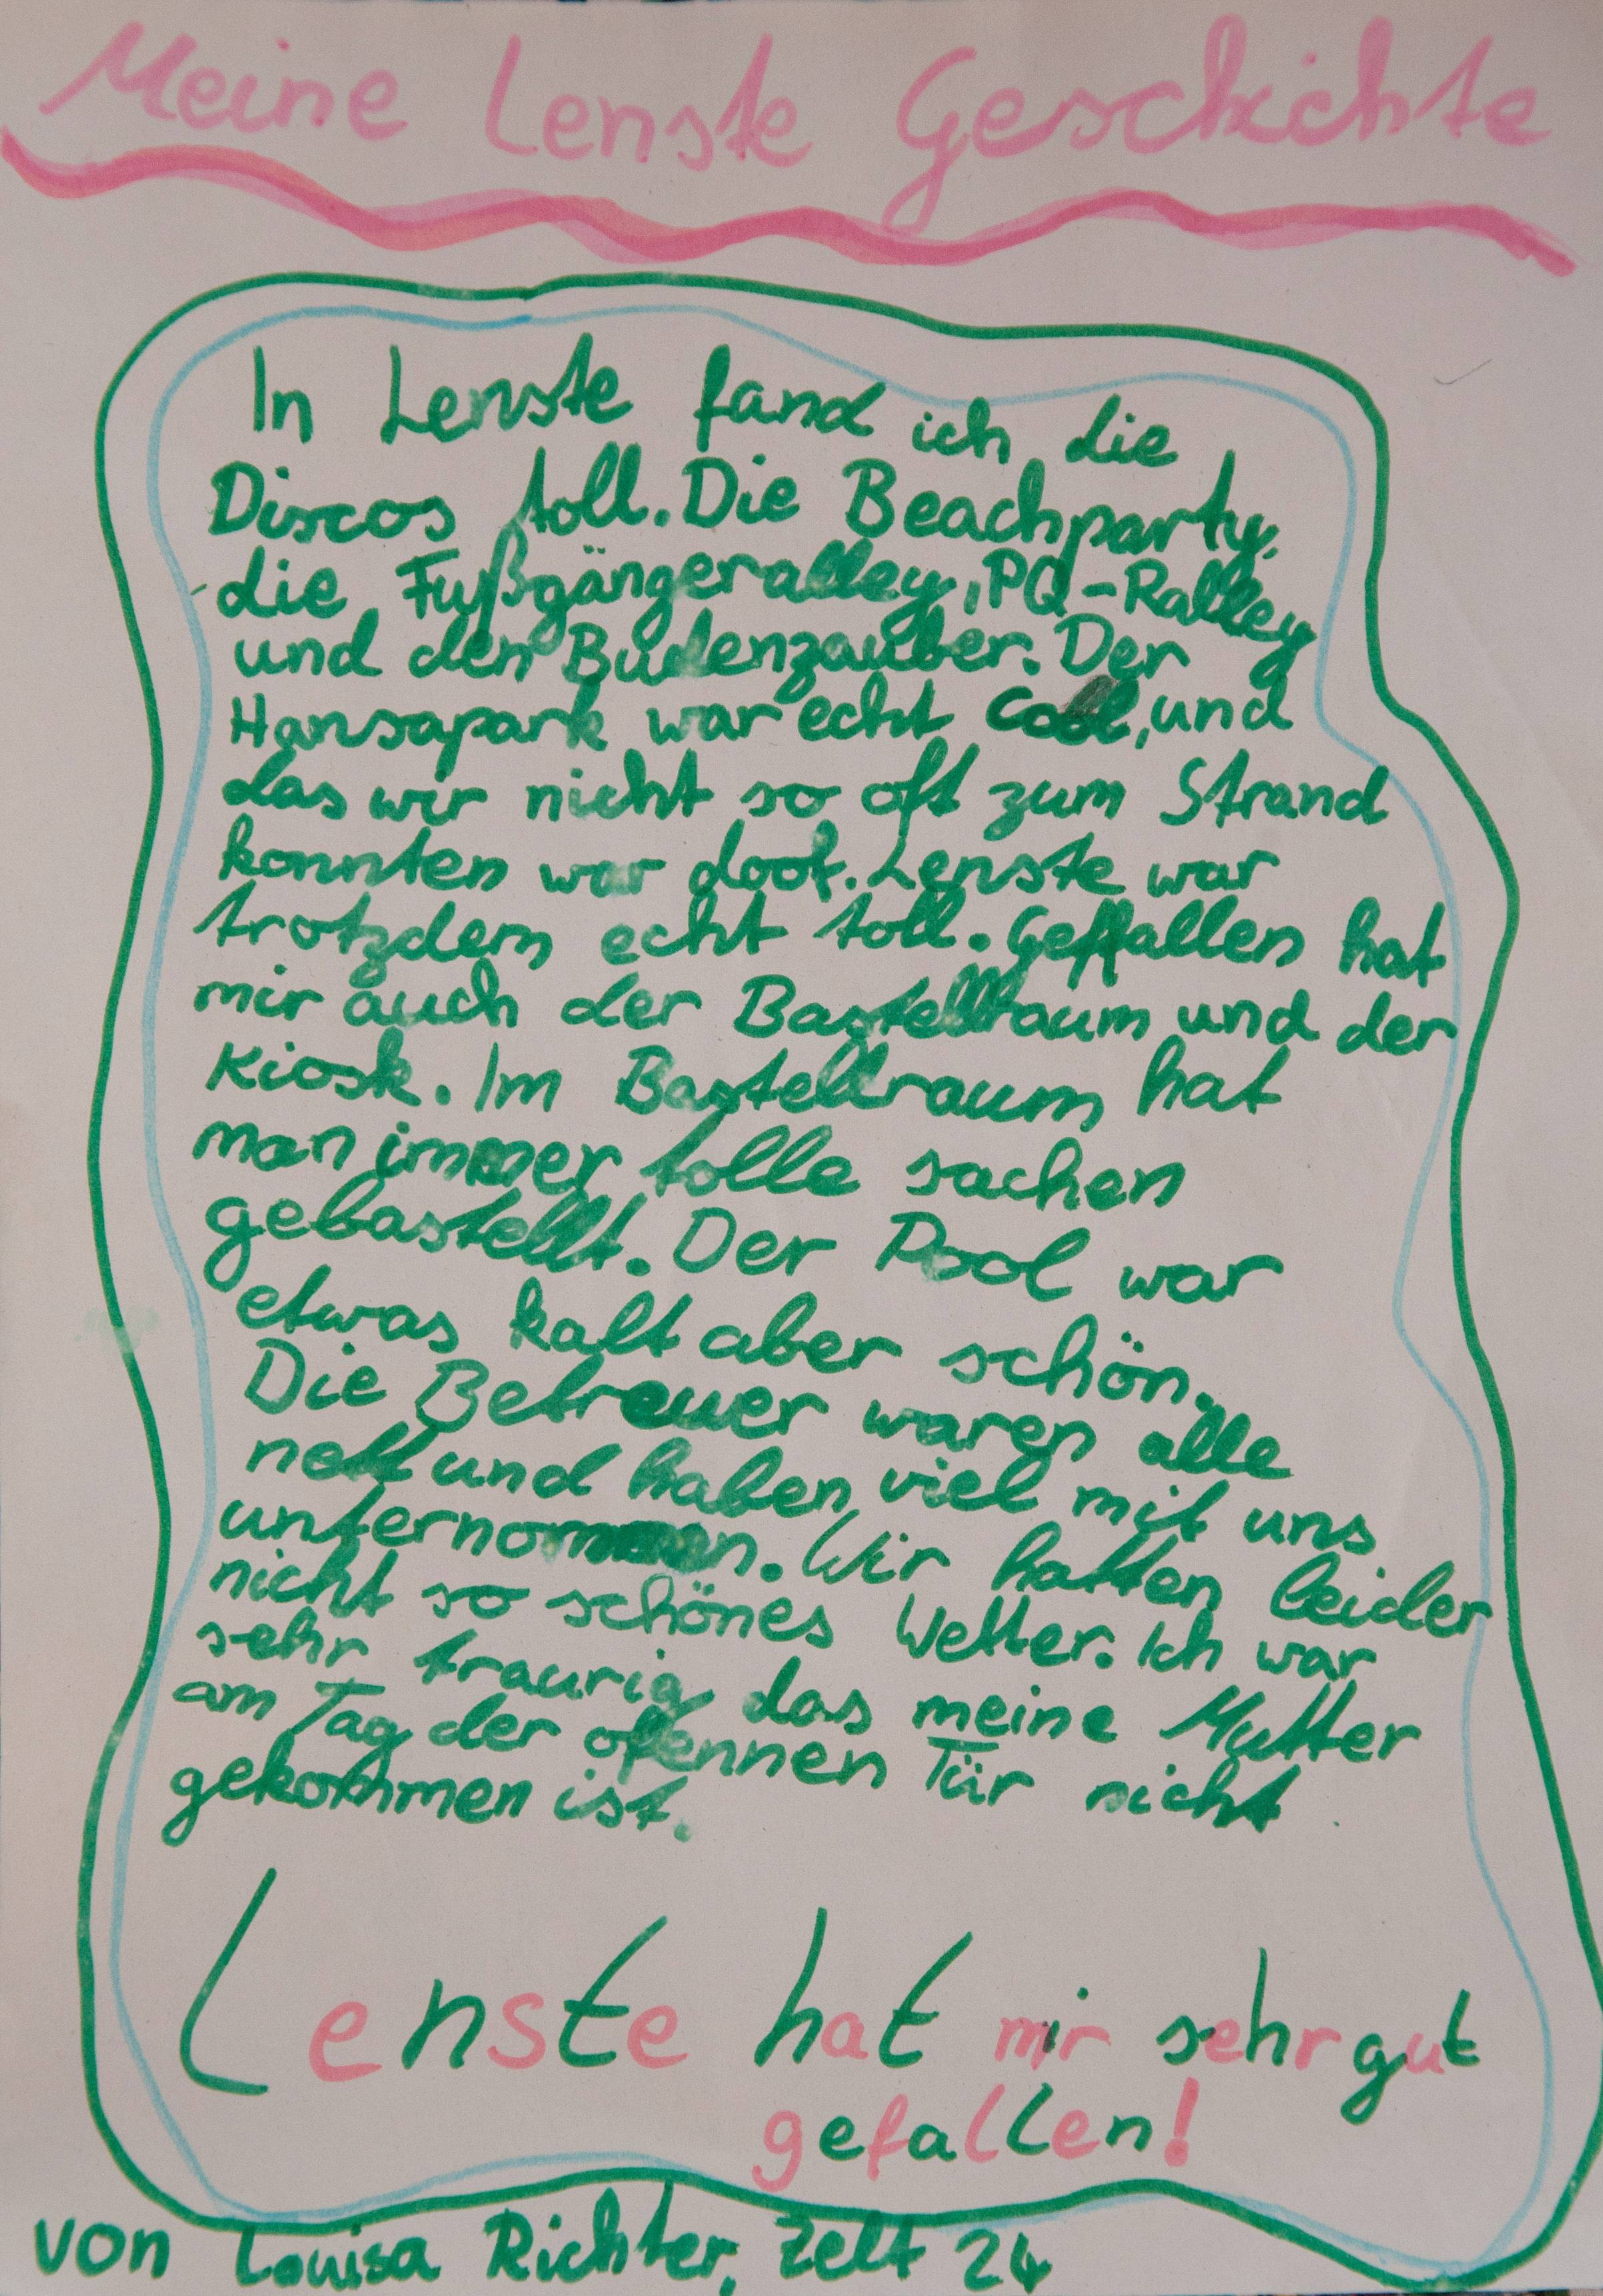 Meine Lenste Geschichte
In Lenste fand ich die
Discos toll. Die Beachparty,
die Fußgängeralley, PQ-Ralley
und den Budenzauber. Der
Hansapark war echt cool, und
das wir nicht so oft zum Strand
konnten war doof. Lenste war
trotzdem echt toll. Geffallen hat
mir auch der Bastellraum und der
Kiosk. Im Bastellraum hat
man immer tolle sachen
gebastellt. Der Pool war
etwas kalt aber schön.
Die Betreuer waren alle
nett und haben viel mit uns
unternommen. Wir hatten leider
nicht so schönes Wetter. Ich war
sehr traurig das meine Mutter
am Tag der ofennen Tür nicht
gekommen ist.
Lenste hat mir sehr gut
gefallen!
von Louisa Richter, Zelt 24